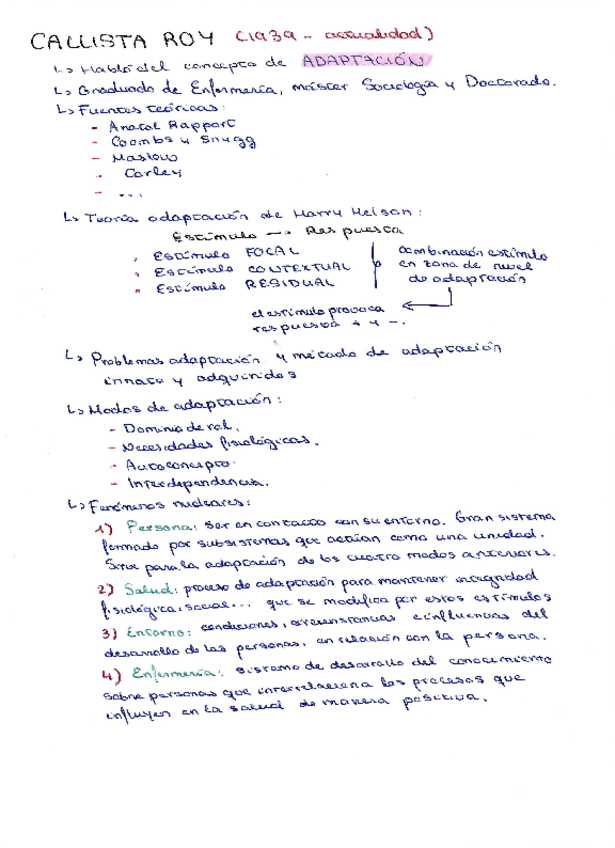 CALLISTA ROY (1939 - actualidad)
↳ Habló del concepto de ADAPTACIÓN
↳ Graduado de Enfermería, máster Sociología y Doctorado.
↳ Fuentes teóricas:
- Anatol Rapport
- Coombs y Snygg
- Maslow
- Corley
- ...
↳ Teoría adaptación de Harry Helson:
Estímulo → Respuesta
. Estímulo FOCAL
. Estímulo CONTEXTUAL
. Estímulo RESIDUAL
combinación estímulo
en zona de nivel
de adaptación
el estímulo provoca
respuesta + y -.
↳ Problemas adaptación y método de adaptación
innato y adquiridos
↳ Modos de adaptación:
- Dominio de rol.
- Necesidades fisiológicas.
- Autoconcepto.
- Interdependencia.
↳ Fenómenos nucleares:
1) Persona: ser en contacto con su entorno. Gran sistema
formado por subsistemas que actúan como una unidad.
Sirve para la adaptación de los cuatro modos anteriores.
2) Salud: proceso de adaptación para mantener integridad
fisiológica, social... que se modifica por estos estímulos
3) Entorno: condiciones, circunstancias e influencias del
desarrollo de las personas, en relación con la persona.
4) Enfermería: sistema de desarrollo del conocimiento
sobre personas que interrelaciona los procesos que
influyen en la salud de manera positiva.